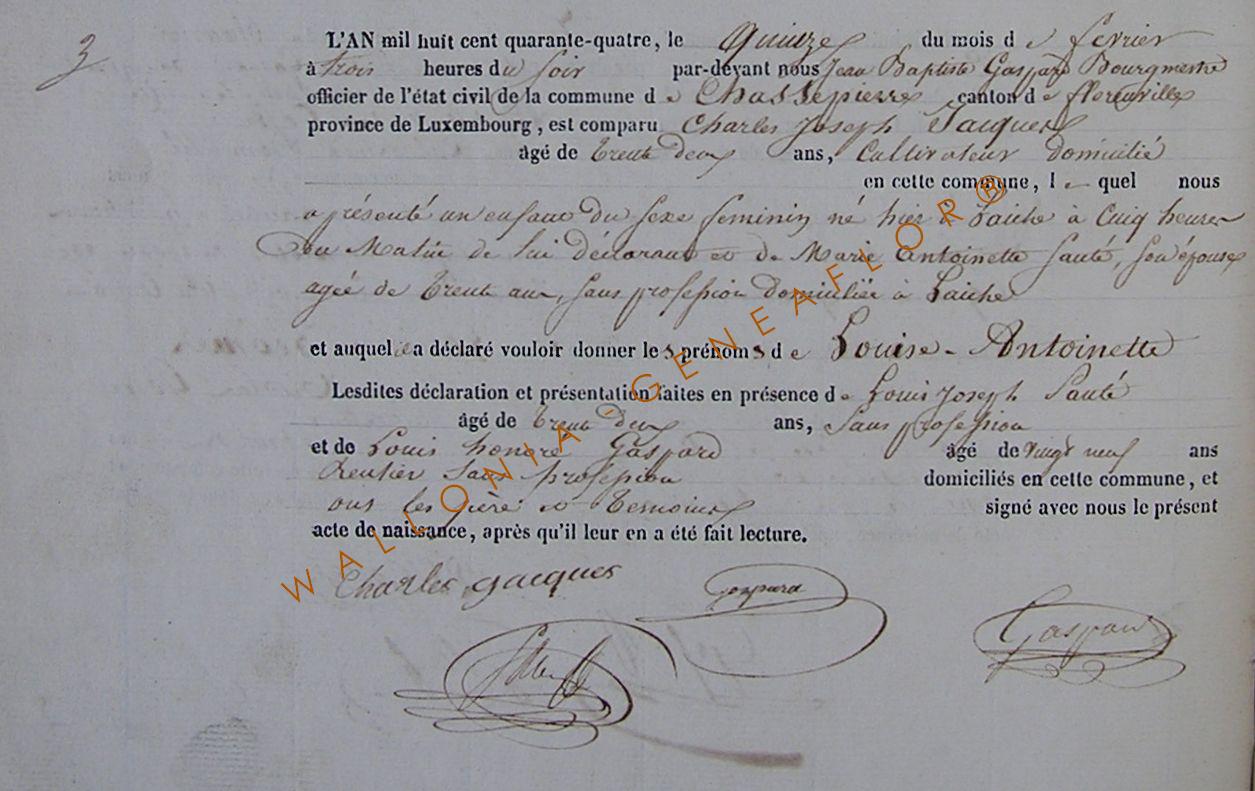 3
L'AN mil huit cent quarante-quatre, le quinze du mois de fevrier
à trois heures du soir par-devant nous Jean Baptiste Gaspard Bourgmestre
officier de l'état civil de la commune de Chassepierre canton de florenville
province de Luxembourg, est comparu Charles Joseph Jacques
âgé de trente deux ans, Cultivateur domicilié
en cette commune, le quel nous
a présenté un enfant du sexe feminin né hier à Laiche à Cinq heures
du Matin de lui déclarant et de Marie Antoinette Santé, son épouse
agée de trente ans, sans profession domiciliée à Laiche
et auquel il a déclaré vouloir donner les prénoms de Louise-Antoinette
Lesdites déclaration et présentation faites en présence de Louis Joseph Santé
âgé de trente deux ans, Sans profession
et de Louis honoré Gaspard âgé de vingt neuf ans
Rentier sans profession domiciliés en cette commune, et
ont les père et temoins signé avec nous le présent
acte de naissance, après qu'il leur en a été fait lecture.
Charles Jacques Gaspard
Gaspard
WALLONIA-GENEAFLOR®